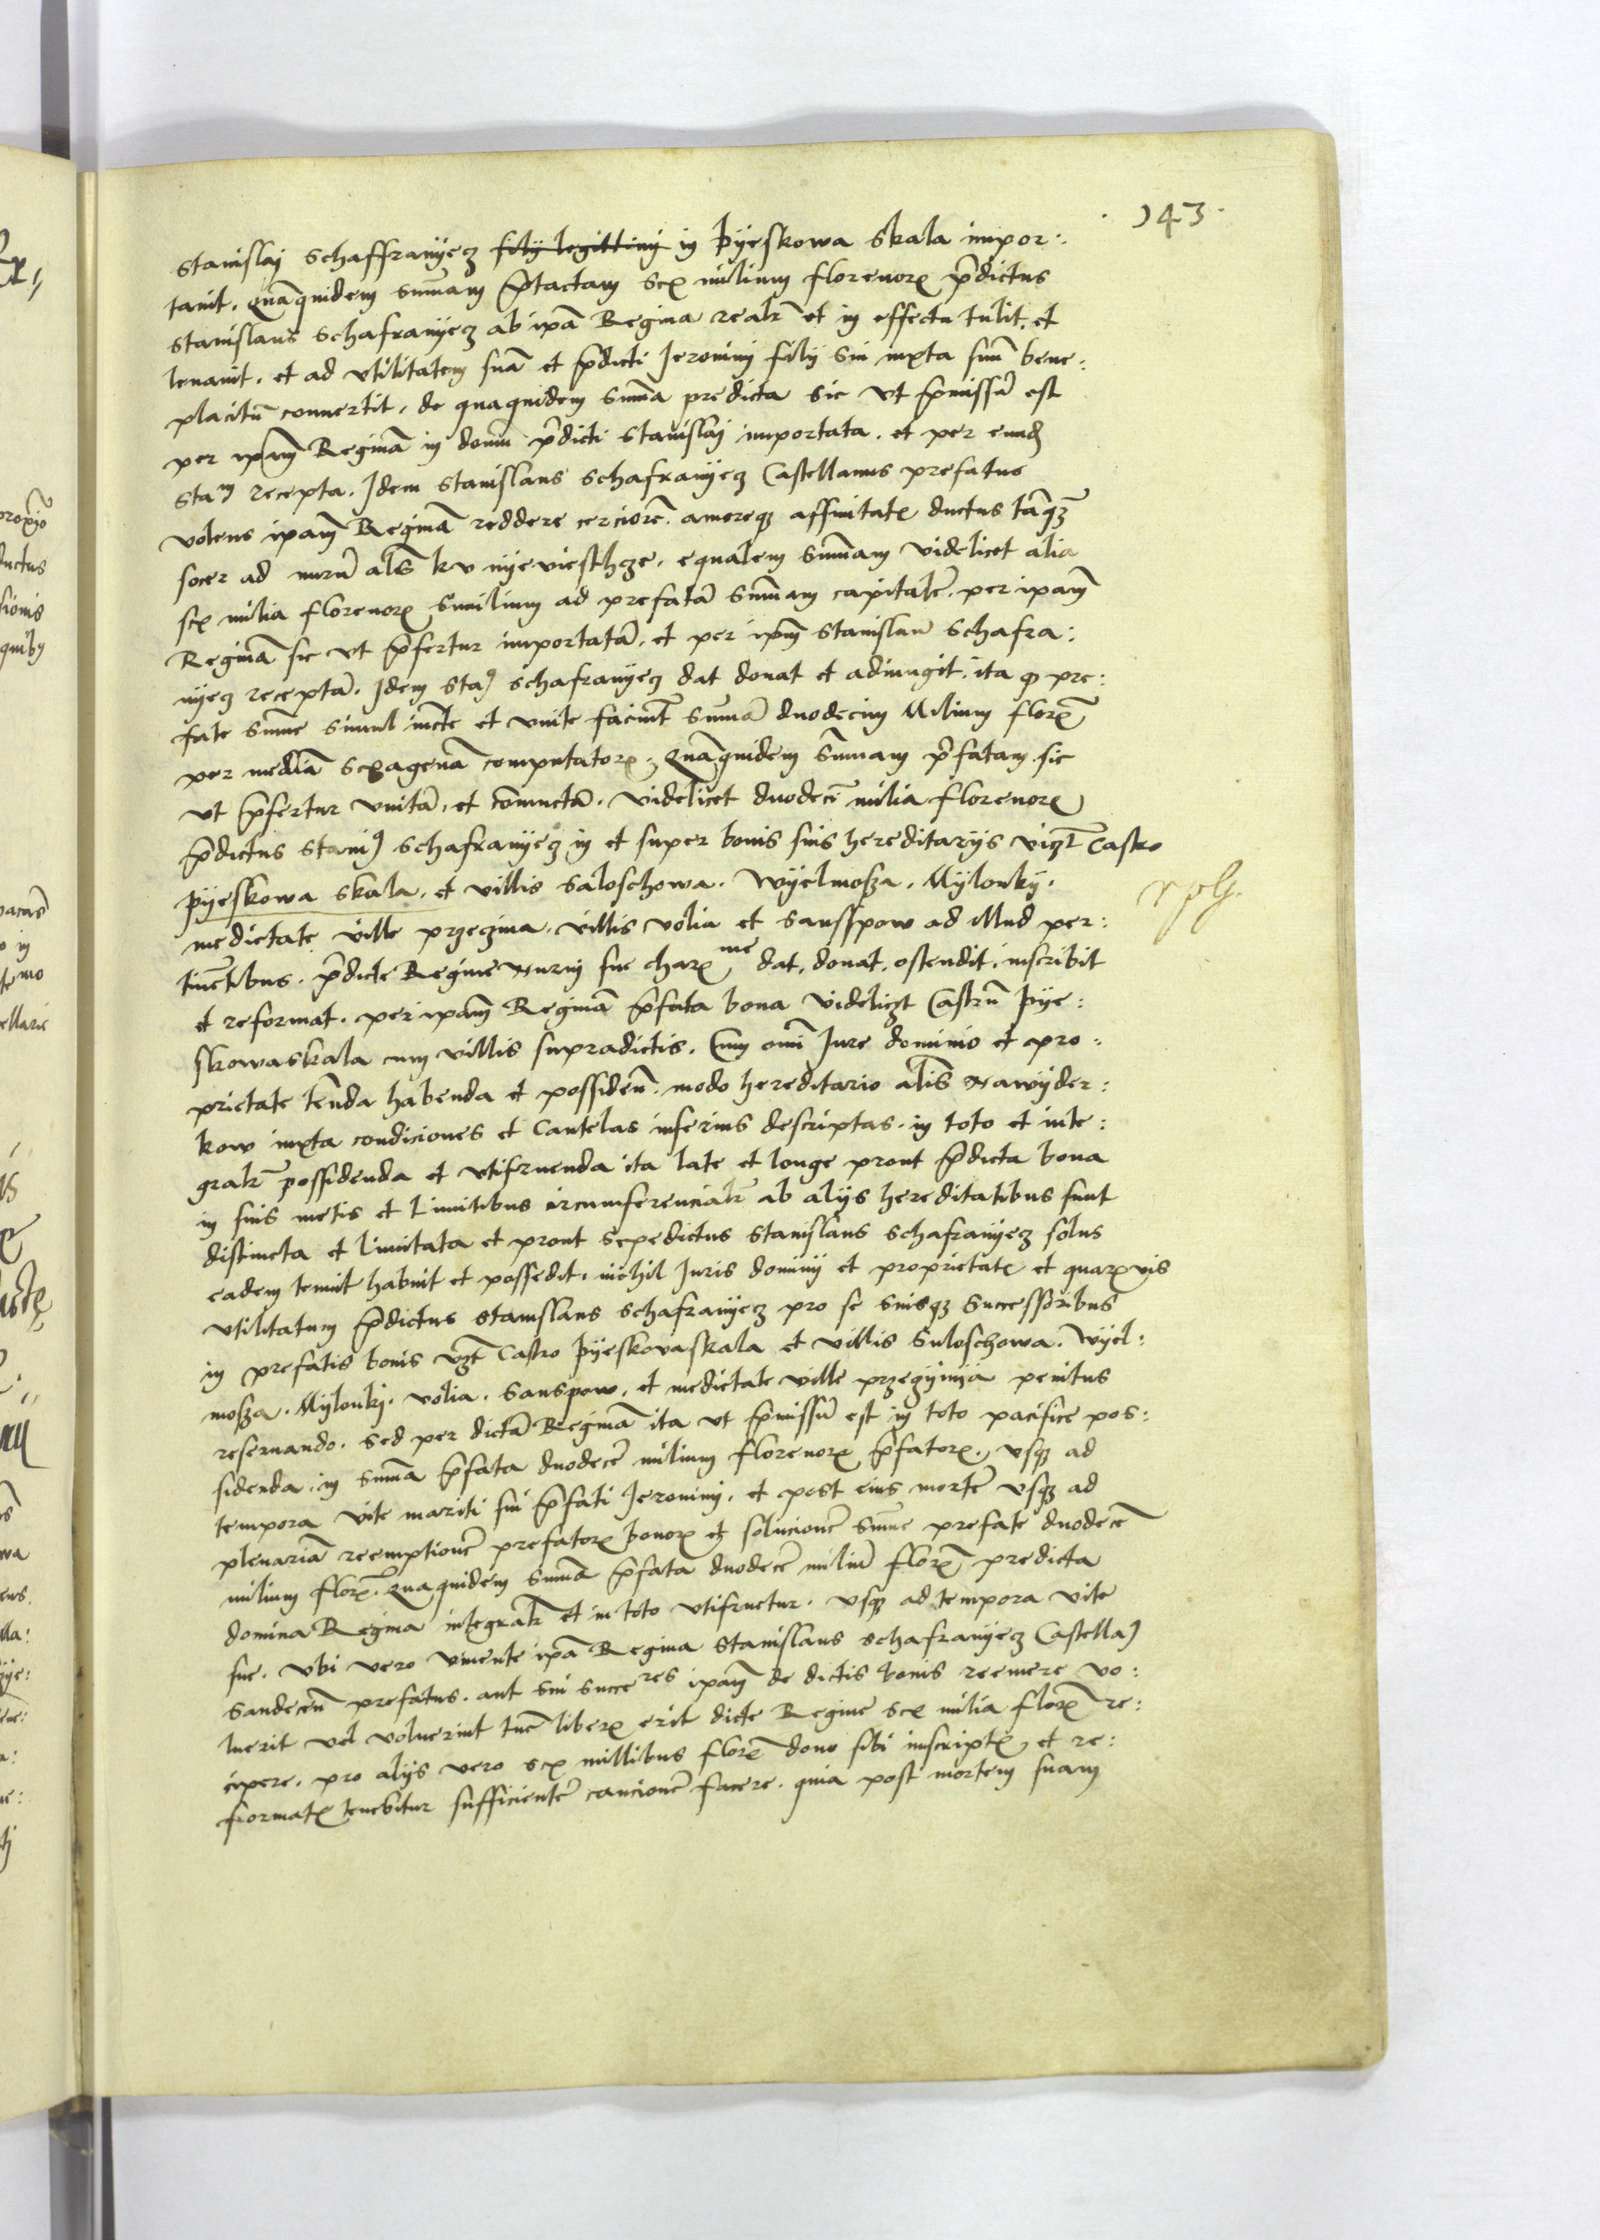 143
Stanislaj Schaffranyecz filij legittimj in Pyeskowa Skala impor:
tavit. Quāquidem summam p̄tactam sex milium florenoꝝ p̄dictus
Stanislaus Schafranyecz ab ipā Regina realr̄ et in effectu tulit, et
levavit. et ad utilitatem suā et p̄dicti Jeronimi filij sui iuxta suū bene:
placitū convertit, de quaquidem sum̄a predicta sic ut p̄missū est
per ip̄am Reginā in domū p̄dicti Stanislaj importata. et per eundē
Staꝰ recepta. Idem Stanislaus Schafranyecz Castellanus prefatus
volens ipam̄ Reginā reddere cerciorē. amoreqꝫ affinitatꝭ ductus tāqꝫ
socer ad nurū al̄s ku nyeviesthcze. equalem sum̄am videlicet alia
sex milia florenoꝝ similium ad prefatā sum̄am capitalē. per ipam̄
Reginā sic ut p̄fertur importatā. et per ip̄m Stanislaū Schafra:
nyecz receptā. Idem Staꝰ Schafranyecz dat donat et adiungit. ita ꝙ pre:
fate sum̄e simul iūcte et unite faciūt sum̄ā duodecim Milium floꝝ
per mediā sexagenā computatoꝝ. Quāquidem sum̄am p̄fatam sic
ut p̄fertur unitā, et coniunctā. videlicet duodecī milia florenoꝝ
p̄dictus Staniꝰ Schafranyecz in et super bonis suis hereditarijs vicꝫt Castro
Pyeskowa skala. et villis Saloschowa. Wyelmosza. Mylonky.
medietate ville przeczina. villis volia et Sansspow ad illud per:
tinētibus. p̄dicte Regine nurui sue chariꝫme dat, donat, ostendit, inscribit
et reformat. per ipam̄ Reginā p̄fata bona videlicꝫt Castrū Pye:
skowaskala cum villis supradictis. Cum om̄i Jure dominio et pro:
prietate tenēda habenda et possidēn. modo hereditario al̄is nawyder:
kow iuxta condiciones et Cautelas inferius descriptas. in toto et inte:
gralr̄ possidenda et utifruenda ita late et longe prout p̄dicta bona
in suis metis et limitibus circumferencialr̄ ab alijs hereditatibus sunt
distincta et limitata et prout sepedictus Stanislaus Schafranyecz solus
eadem tenuit habuit et possedit. nichil Juris dominij et proprietatꝭ et quaꝝvis
utilitatum p̄dictus Stanislaus Schafranyecz pro se suisqꝫ successoribus
in prefatis bonis vꝫt Castro Pyeskovaskala et villis Suloschowa. Wyel:
mosza. Mylonky. volia. Sanspow. et medietate ville przegyinya penitus
reservando. Sed per dictā Reginā ita ut p̄missū est in toto pacifice pos:
sidenda. in sum̄a p̄fata duodecē milium florenoꝝ p̄fatoꝝ. usqꝫ ad
tempora vite mariti sui p̄fati Jeronimi. et post eius mortē usqꝫ ad
plenariā reemptionē prefatoꝝ bonoꝝ et solucionē sum̄e prefate duodecē
milium floꝝ. Quaquidem sum̄a p̄fata duodecē miliū floꝝ predicta
domina Regina integralr̄ et in toto utifruetur. usqꝫ ad tempora vite
sue. Ubi vero vivente ipā Regina Stanislaus Schafranyecz Castellaꝰ
Sandecēn prefatus. aut sui succeres ipam̄ de dictis bonis reemere vo:
luerit vel voluerint tūc liberꝫ erit dicte Regine sex milia floꝝ re:
cipere. pro alijs vero sex millibus floꝝ dono sibi inscriptꝭ et re:
formatꝭ tenebitur sufficientē caucionē facere. quia post mortem suam